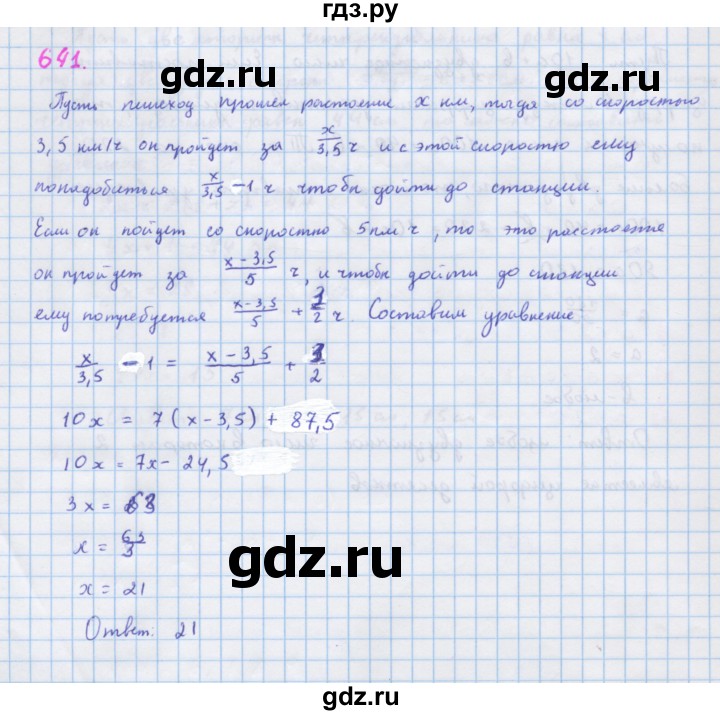 гдз.ру
641.
gdz.ru
gdz.ru
Пусть пешеход прошел расстояние x км, тогда со скоростью
3,5 км/ч он пройдет за x/3,5 ч и с этой скоростью ему
понадобиться x/3,5 - 1 ч чтобы дойти до станции.
Если он пойдет со скоростью 5км ч, то это расстояние
он пройдет за x - 3,5/5 ч, и чтобы дойти до станции
ему потребуется x - 3,5/5 + 1/2 ч. Составим уравнение
x/3,5 - 1 = x - 3,5/5 + 1/2
10x = 7(x - 3,5) + 87,5
10x = 7x - 24,5
3x = 63
x = 63/3
gdz.ru
x = 21
Ответ: 21
gdz.ru